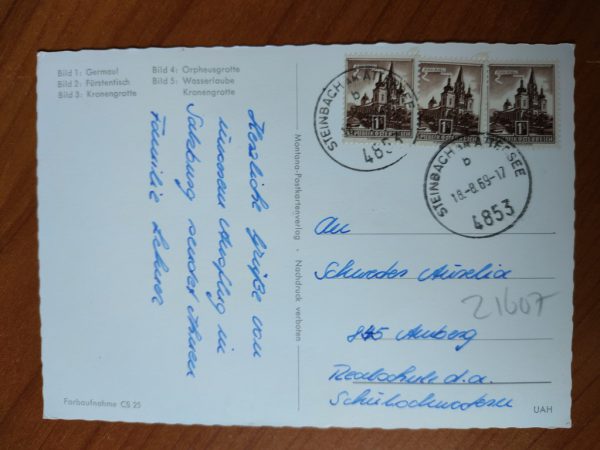 Bild 1: Germaul
Bild 2: Fürstentisch
Bild 3: Kronengrotte
Bild 4: Orpheusgrotte
Bild 5: Wasserlaube
Kronengrotte
Herzliche Grüße von
unserem Ausflug in
Salzburg sendet Ihnen
Familie
Farbaufnahme CS 25
Montana-Postkartenverlag · Nachdruck verboten
STEINBACH AM ATTERSEE
b
4853
STEINBACH AM ATTERSEE
b
18.-8.69-17
4853
An
Schwester Aurelia
21607
845 Amberg
Realschule d. a.
Schulschwestern
UAH